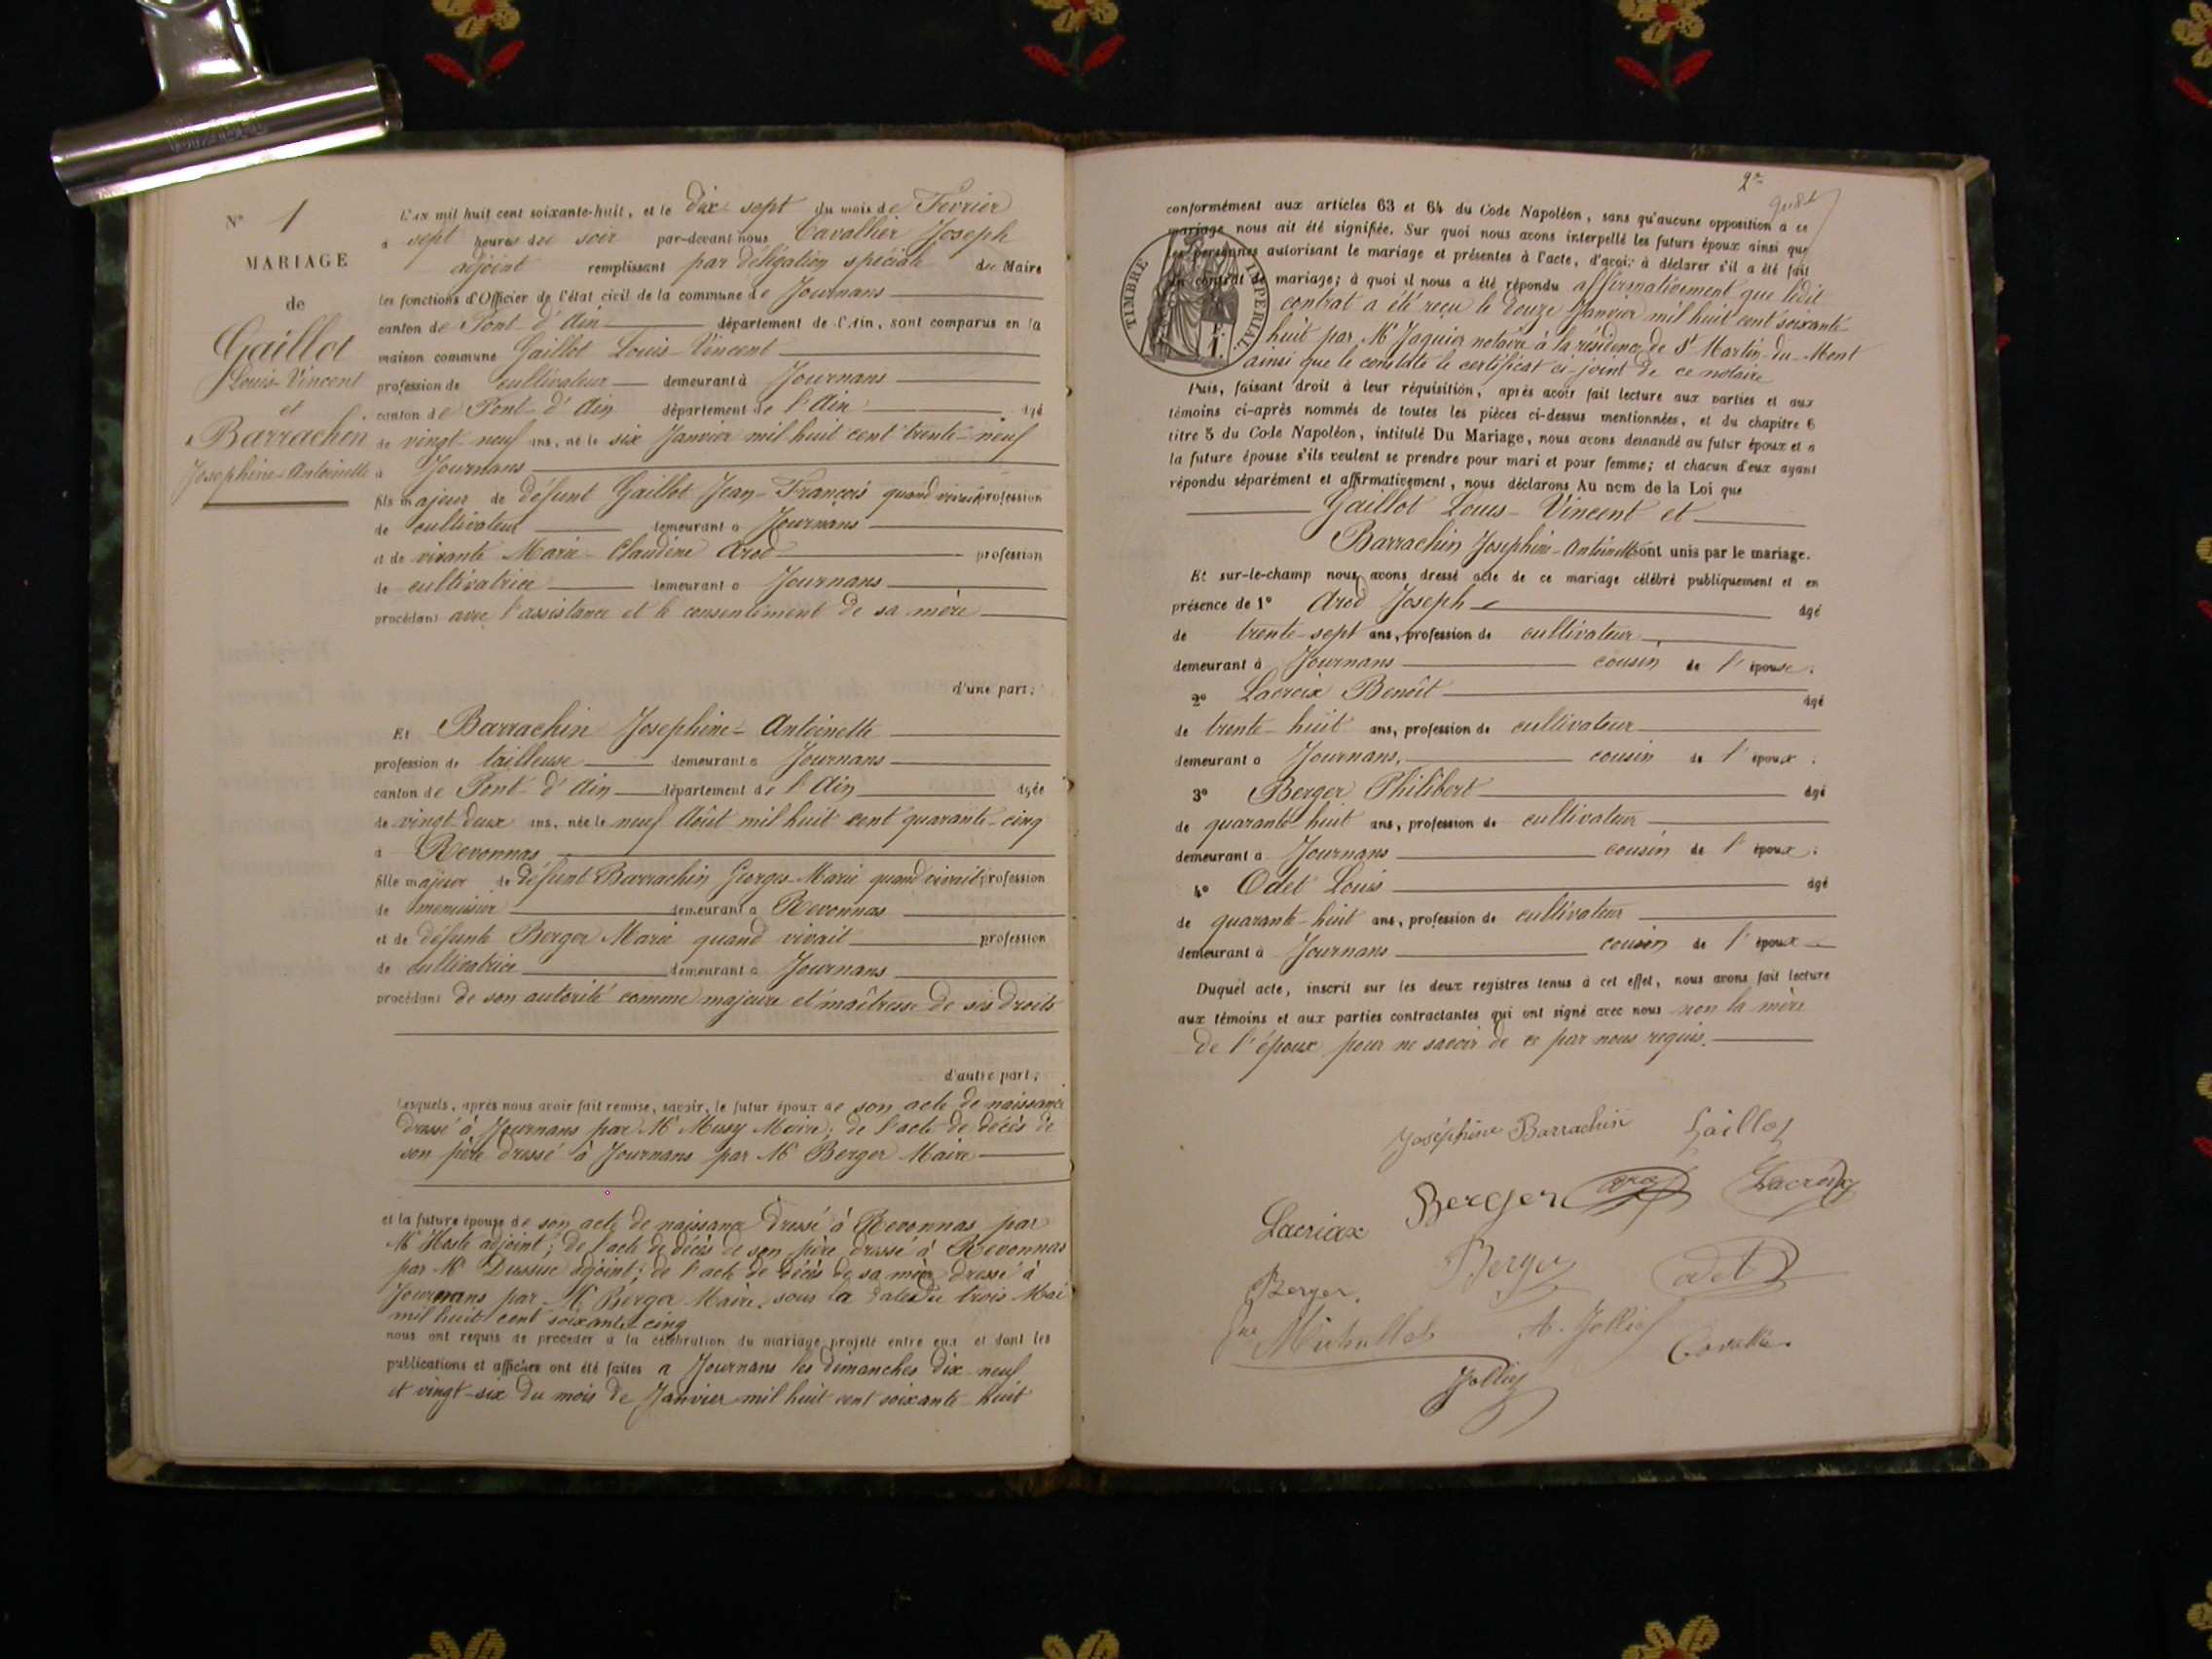 N° 1
MARIAGE
de
Gaillot
Louis-Vincent
et
Barrachin
Josephine-Antoinette
L'an mil huit cent soixante-huit, et le Dix-sept du mois de Fevrier
a sept heures du soir par-devant nous Cavallier Joseph
adjoint remplissant par délégation spéciale du Maire
les fonctions d'Officier de l'état civil de la commune de Journans
canton de Pont-d'Ain département de l'Ain, sont comparus en la
maison commune Gaillot Louis-Vincent
profession de cultivateur demeurant à Journans
canton de Pont-d'Ain département de l'Ain âgé
de vingt-neuf ans, né le six Janvier mil huit cent trente-neuf
à Journans
fils majeur de défunt Gaillot Jean-François quand vivait profession
de cultivateur demeurant à Journans
et de vivante Marie-Claudine Arod profession
de cultivatrice demeurant à Journans
procédant avec l'assistance et le consentement de sa mère
d'une part;
Et Barrachin Josephine-Antoinette
profession de tailleuse demeurant à Journans
canton de Pont-d'Ain département de l'Ain âgée
de vingt-deux ans, née le neuf Août mil huit cent quarante-cinq
à Revonnas
fille majeur de défunt Barrachin Georges-Marie quand vivait profession
de menuisier demeurant à Revonnas
et de défunte Berger Marie quand vivait profession
de cultivatrice demeurant à Journans
procédant de son autorité comme majeure et maîtresse de ses droits
d'autre part;
Lesquels, après nous avoir fait remise, savoir, le futur époux de son acte de naissance
dressé à Journans par Mr Musy Maire; de l'acte de décès de
son père dressé à Journans par Mr Berger Maire
et la future épouse de son acte de naissance dressé à Revonnas par
Mr Hoste adjoint; de l'acte de décès de son père dressé à Revonnas
par Mr adjoint; de l'acte de décès de sa mère dressé à
Journans par Mr Berger Maire. sous la date du trois Mai
mil huit cent soixante-cinq
nous ont requis de procéder à la célébration du mariage projeté entre eux et dont les
publications et affiches ont été faites à Journans les dimanches dix-neuf
et vingt-six du mois de Janvier mil huit cent soixante-huit
2e
conformément aux articles 63 et 64 du Code Napoléon, sans qu'aucune opposition à ce
mariage nous ait été signifiée. Sur quoi nous avons interpellé les futurs époux ainsi que
les personnes autorisant le mariage et présentes à l'acte, d'avoir à déclarer s'il a été fait
un contrat de mariage; à quoi il nous a été répondu affirmativement que ledit
contrat a été reçu le douze Janvier mil huit cent soixante-
huit par Mr Jaquier notaire à la résidence de St Martin-du-Mont
ainsi que le constate le certificat ci-joint de ce notaire
TIMBRE IMPERIAL
Puis, faisant droit à leur réquisition, après avoir fait lecture aux parties et aux
témoins ci-après nommés de toutes les pièces ci-dessus mentionnées, et du chapitre 6
titre 5 du Code Napoléon, intitulé Du Mariage, nous avons demandé au futur époux et à
la future épouse s'ils veulent se prendre pour mari et pour femme; et chacun d'eux ayant
répondu séparément et affirmativement, nous déclarons Au nom de la Loi que
Gaillot Louis-Vincent et
Barrachin Josephine-Antoinette sont unis par le mariage.
Et sur-le-champ nous avons dressé acte de ce mariage célébré publiquement et en
présence de 1° Arod Joseph âgé
de trente-sept ans, profession de cultivateur
demeurant à Journans cousin de l'épouse.
2° Lacroix Benoît âgé
de trente-huit ans, profession de cultivateur
demeurant à Journans, cousin de l'époux.
3° Berger Philibert âgé
de quarante-huit ans, profession de cultivateur
demeurant à Journans cousin de l'époux.
4° Odet Louis âgé
de quarante-huit ans, profession de cultivateur
demeurant à Journans cousin de l'époux
Duquel acte, inscrit sur les deux registres tenus à cet effet, nous avons fait lecture
aux témoins et aux parties contractantes qui ont signé avec nous non la mère
de l'époux pour ne savoir de ce par nous requis.
Joséphine Barrachin Gaillot
Berger Arod Lacroix
Lacriax
Berger Odet
Berger.
A. Jolliet
Cavallier
Jolliet